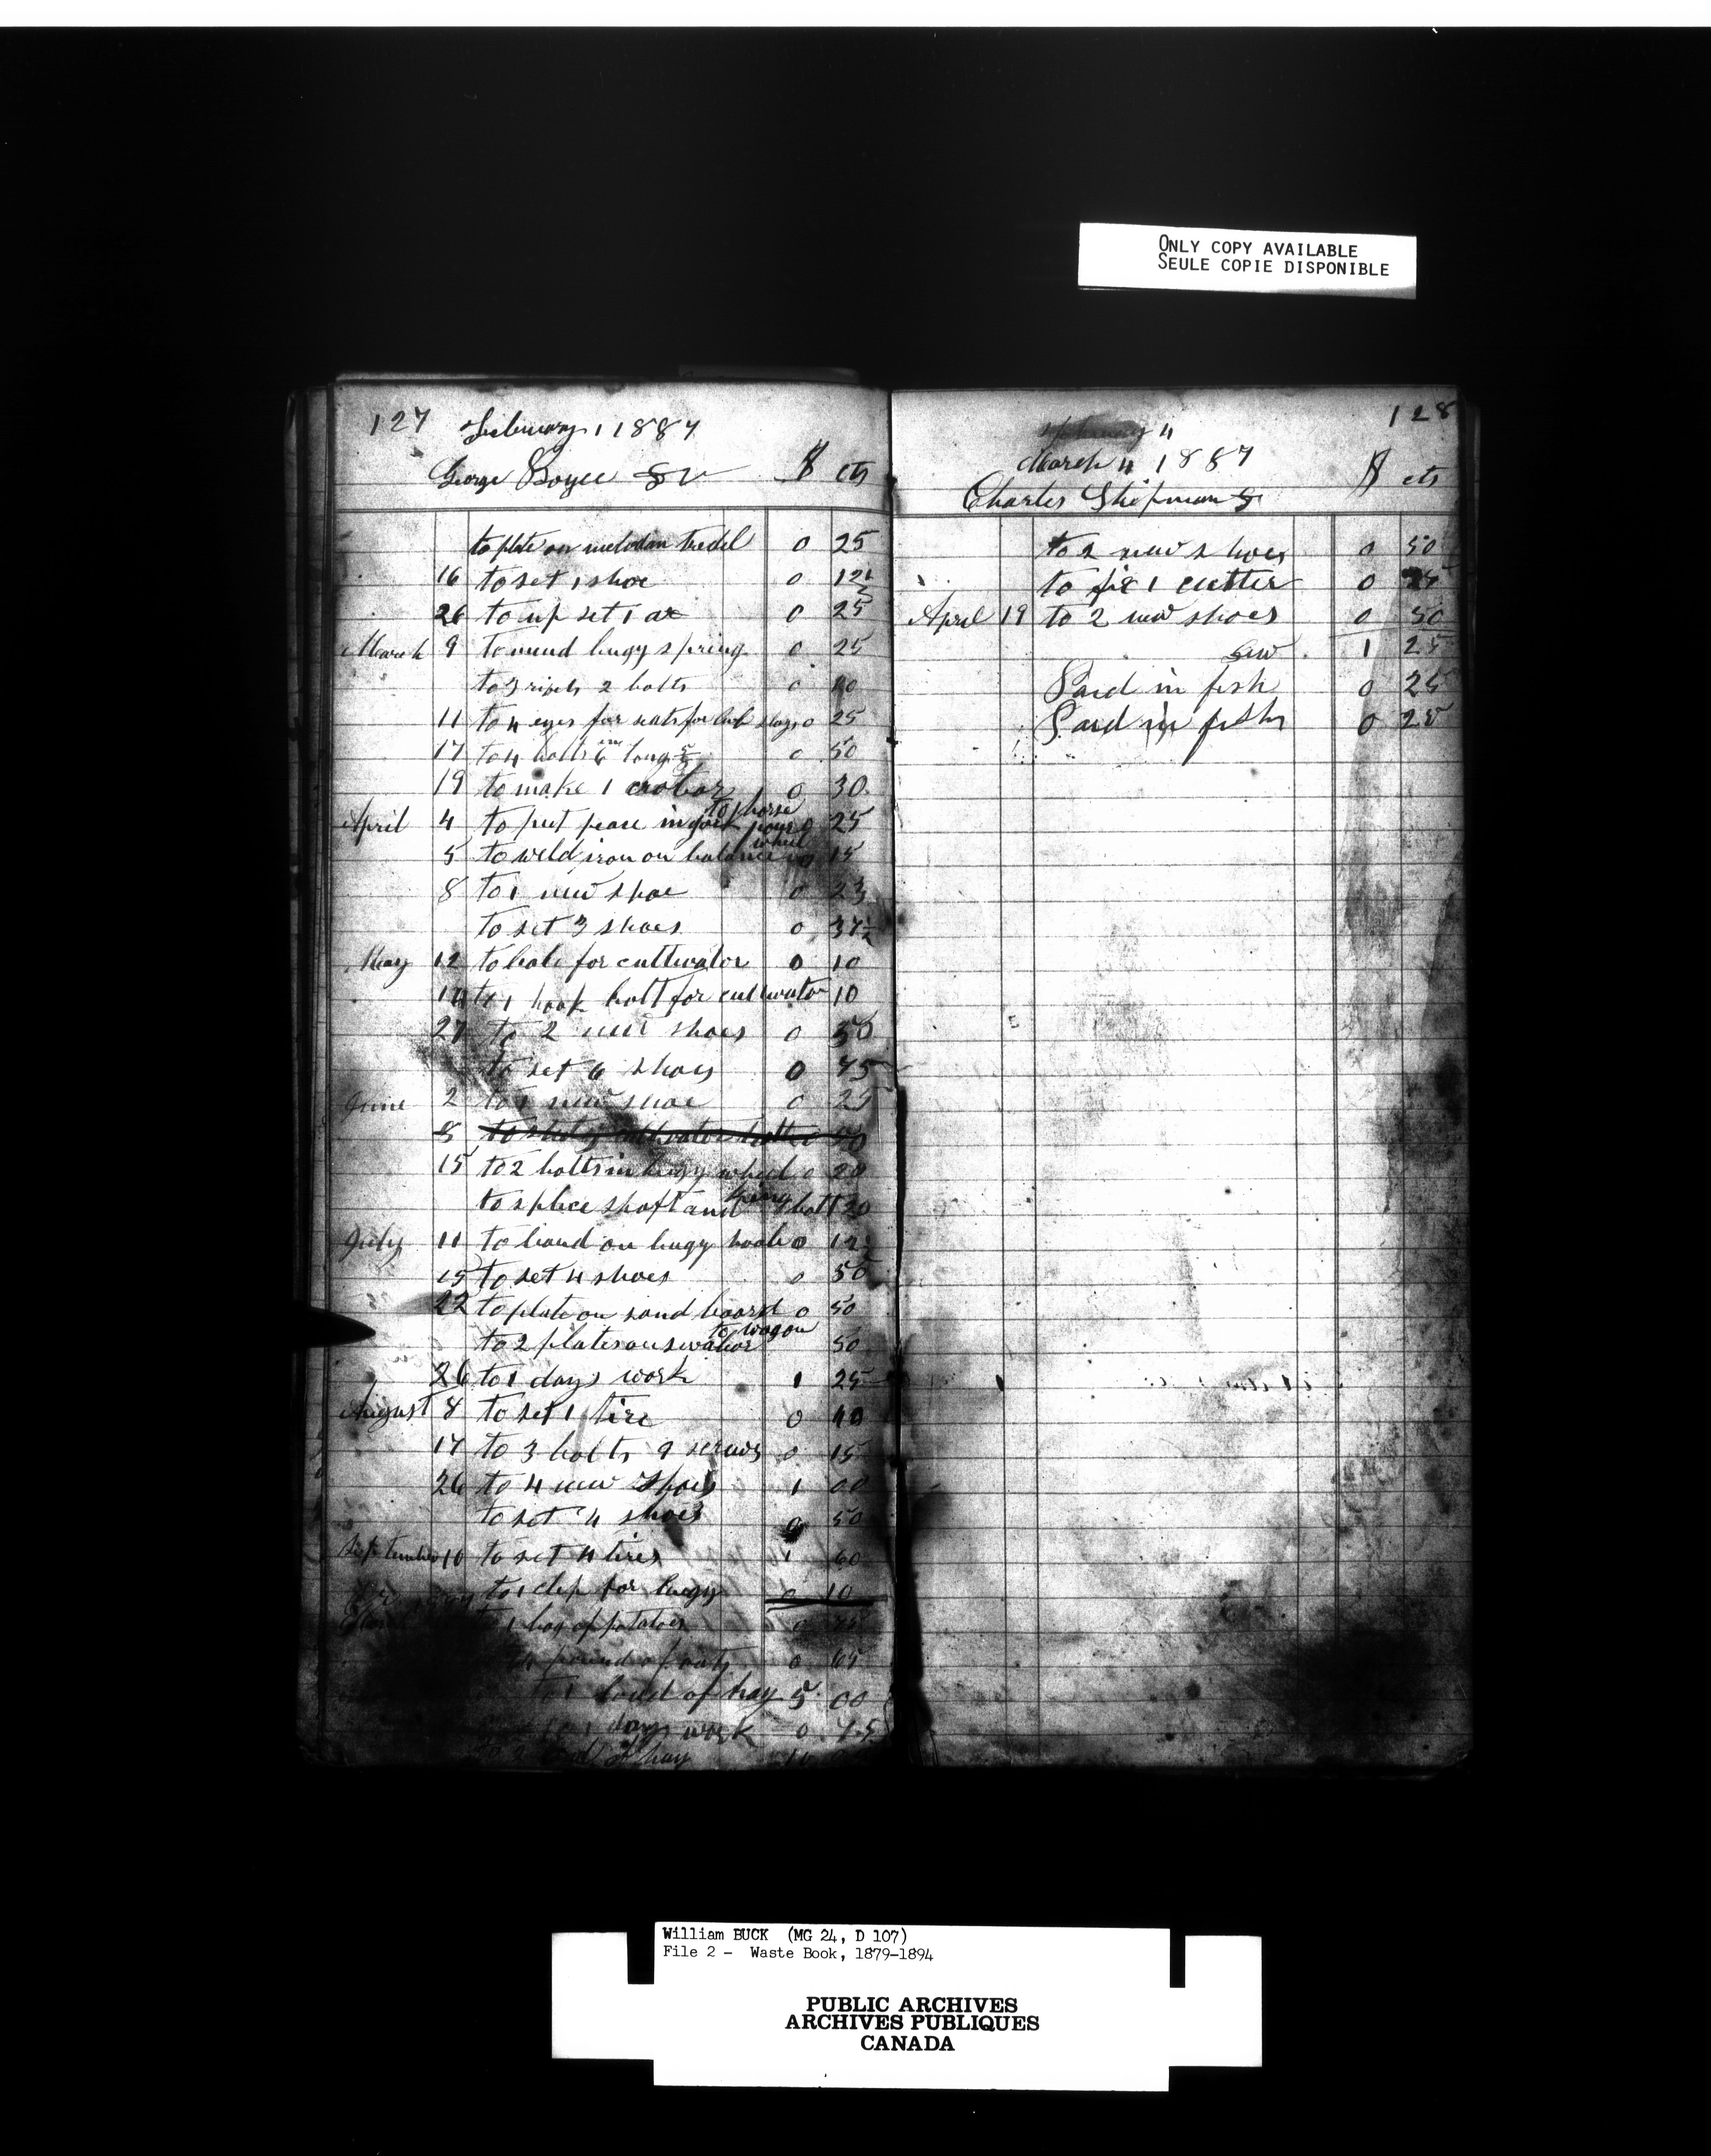 ONLY COPY AVAILABLE
SEULE COPIE DISPONIBLE
127 February 1 1887
George Boyce $ cts
to plate on melodan tredel 0 25
16 to set 1 shoe 0 12 1/2
26 to up set 1 ax 0 25
March 9 to mend bugy spring 0 25
to 3 rivets 2 bolts 0 10
11 to 4 eyes for seats for bob slays 0 25
17 to 4 bolts 6 in long 0 50
19 to make 1 crobar 0 30
April 4 to put peace in jack to horse power 0 25
5 to weld iron on balance wheel 0 15
8 to 1 new shoe 0 25
to set 3 shoes 0 37 1/2
May 12 to bolt for cultivator 0 10
14 to 1 hook bolt for cultivator 10
27 to 2 new shoes 0 50
to set 6 shoes 0 75
June 2 to 1 new shoe 0 25
8 to cultivator 50
15 to 2 bolts in bugy wheel 0 20
to splice shaft and spring bolt 30
July 11 to band on bugy hoob 0 12 1/2
15 to set 4 shoes 0 50
22 to plate on sand board 0 50
to 2 plates on to wagon 50
26 to 1 days work 1 25
August 8 to set 1 tire 0 40
17 to 3 bolts 9 screws 0 15
26 to 4 new shoes 1 00
to set 4 shoes 0 50
September 10 to set 4 tires 1 60
to 1 clip for bugy 0 10
to 1 bag of potatoes 0 75
pound of oats 0 65
to 1 load of hay 5 00
to 1 days work 0 75
to 2 load of hay 10
128
4
March 4 1887
Charles Shipman $ cts
to 2 new shoes 0 50
to fix 1 cutter 0 25
April 19 to 2 new shoes 0 50
1 25
Paid in fish 0 25
Paid in fish 0 25
William BUCK (MG 24, D 107)
File 2 - Waste Book, 1879-1894
PUBLIC ARCHIVES
ARCHIVES PUBLIQUES
CANADA